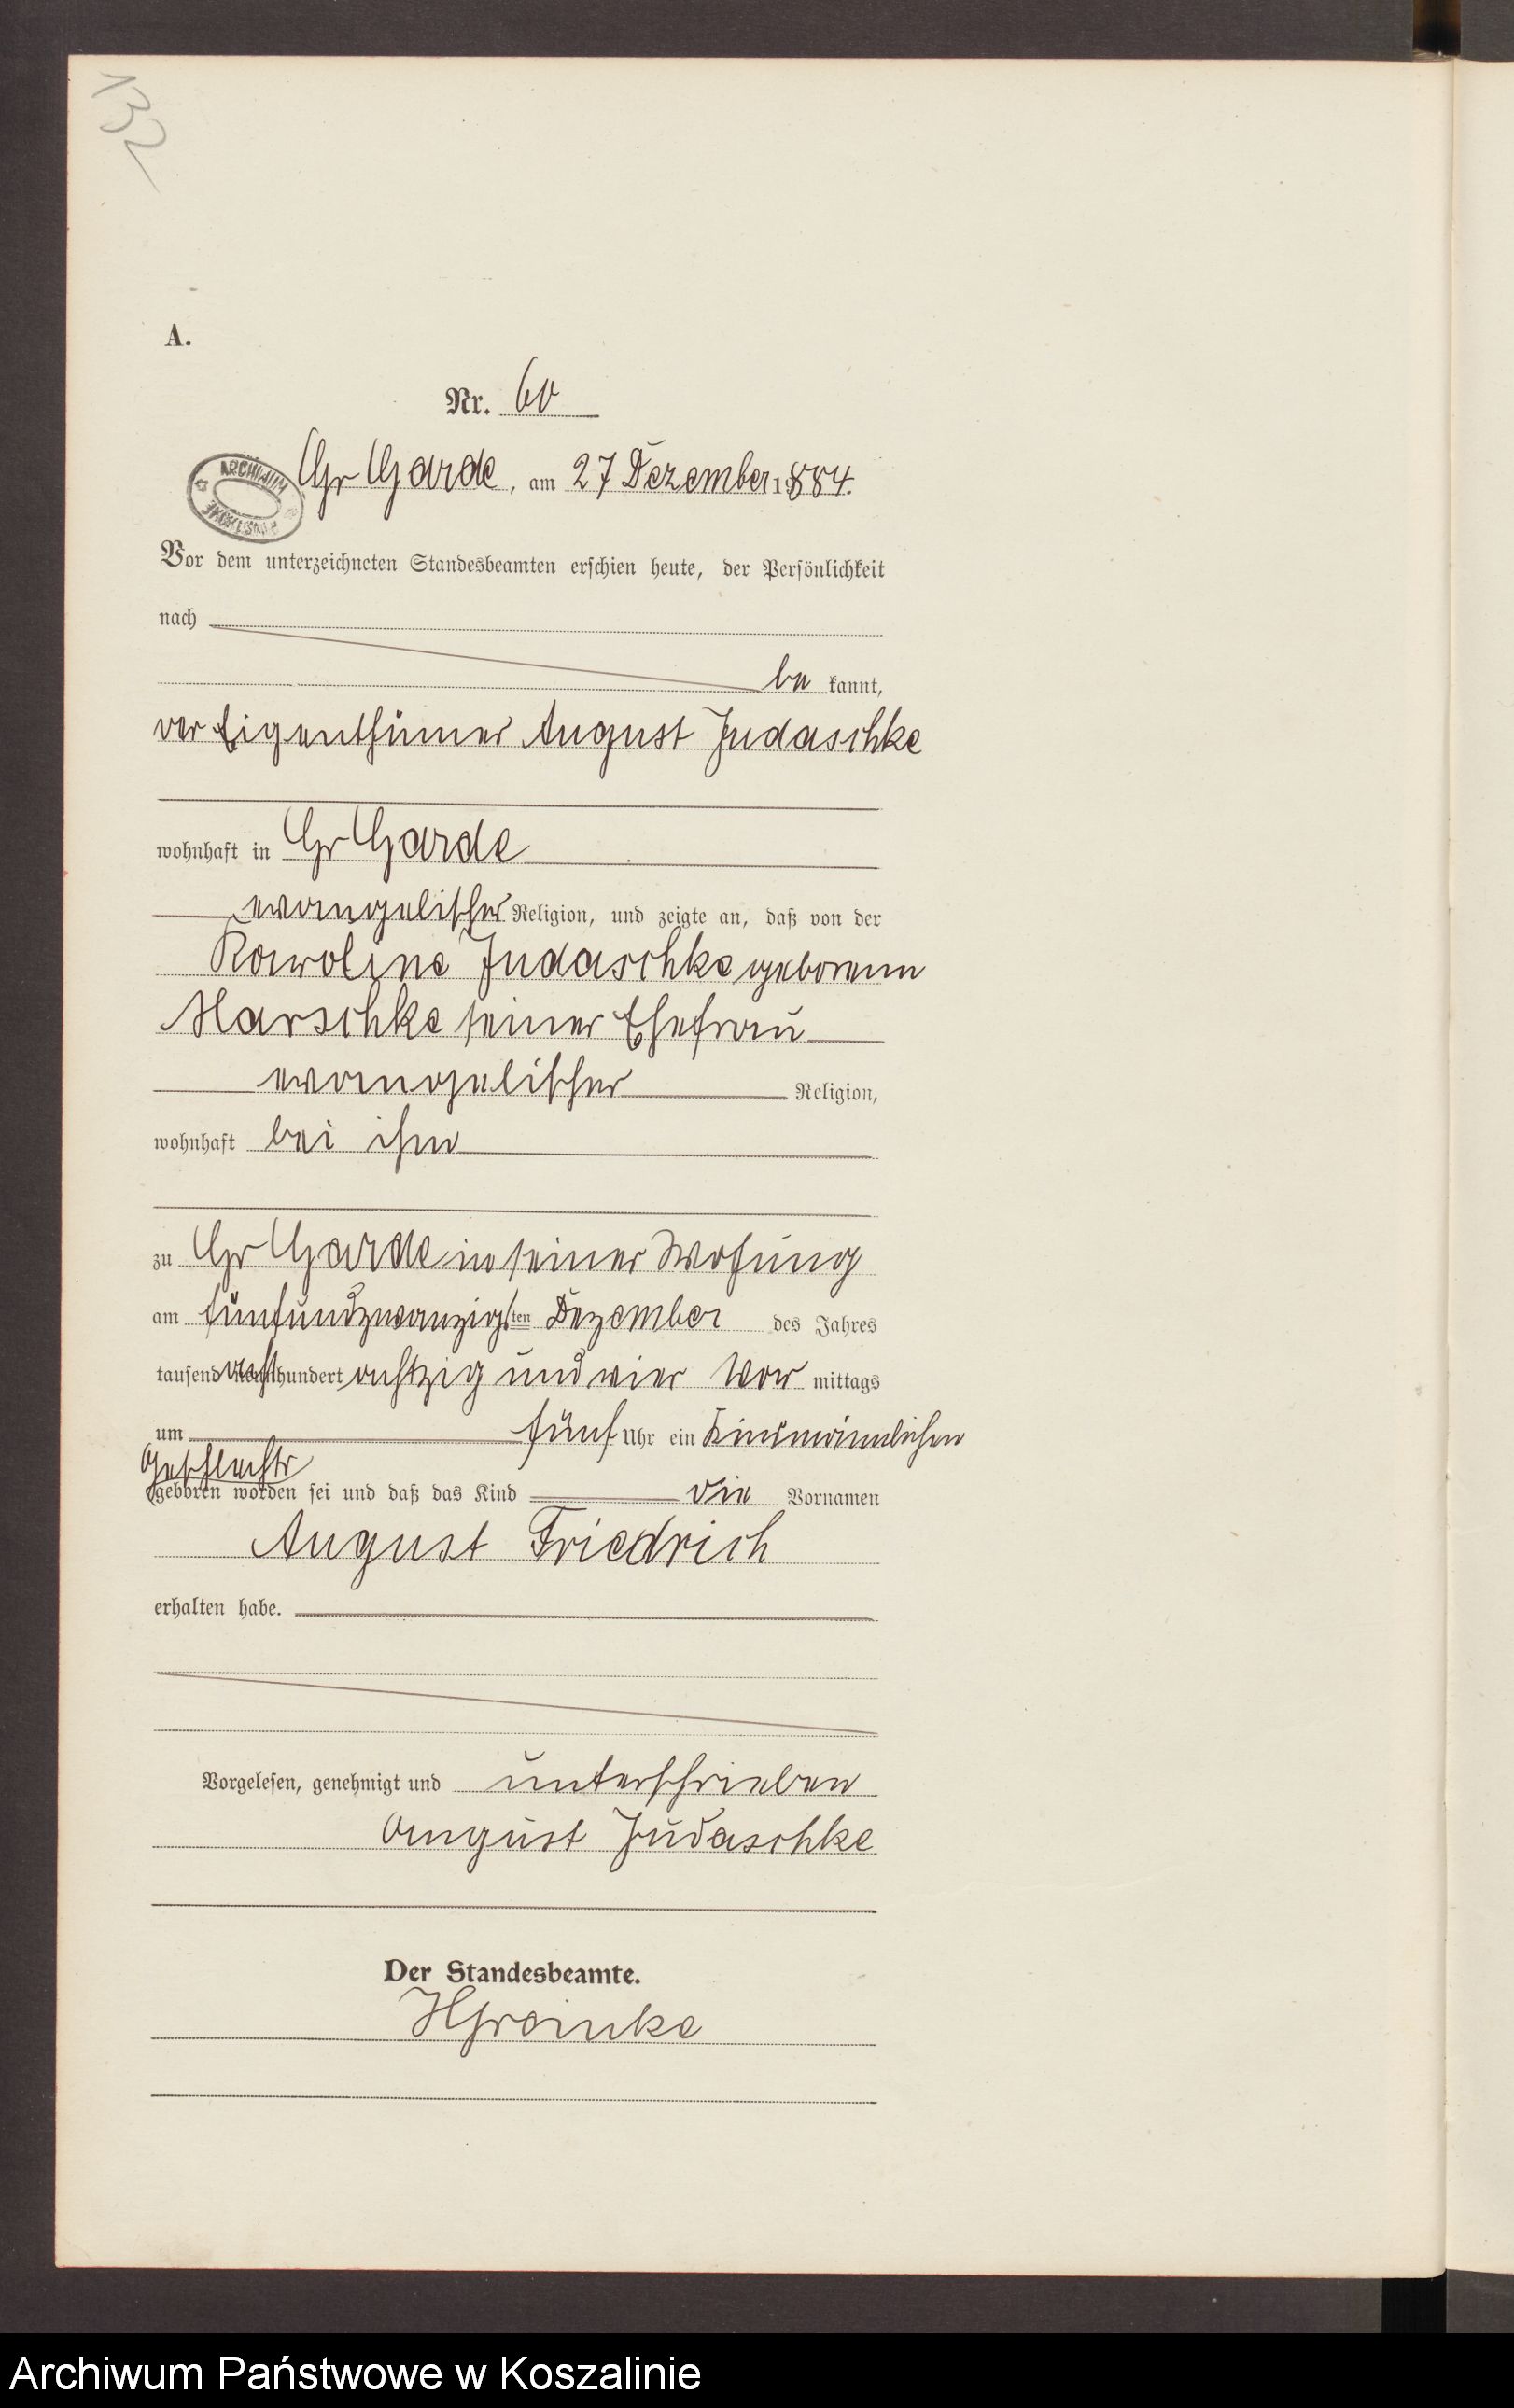 132
A.
Nr. 60
ARCHIWUM
Gr Garde, am 27 Dezember 1884.
Vor dem unterzeichneten Standesbeamten erschien heute, der Persönlichkeit
nach
be kannt,
der Eigenthümer August Judaschke
wohnhaft in Gr Garde
evangelischer Religion, und zeigte an, daß von der
Karoline Judaschke geborenen
Marschke seiner Ehefrau
evangelischer Religion,
wohnhaft bei ihm
zu Gr Garde in seiner Wohung
am fünfundzwanzigsten Dezember des Jahres
tausend acht hundert achtzig und vier Vor mittags
um fünf Uhr ein Kind männlichen
Geschlechts
geboren worden sei und daß das Kind die Vornamen
August Friedrich
erhalten habe.
Vorgelesen, genehmigt und unterschrieben
August Judaschke
Der Standesbeamte.
Archiwum Państwowe w Koszalinie